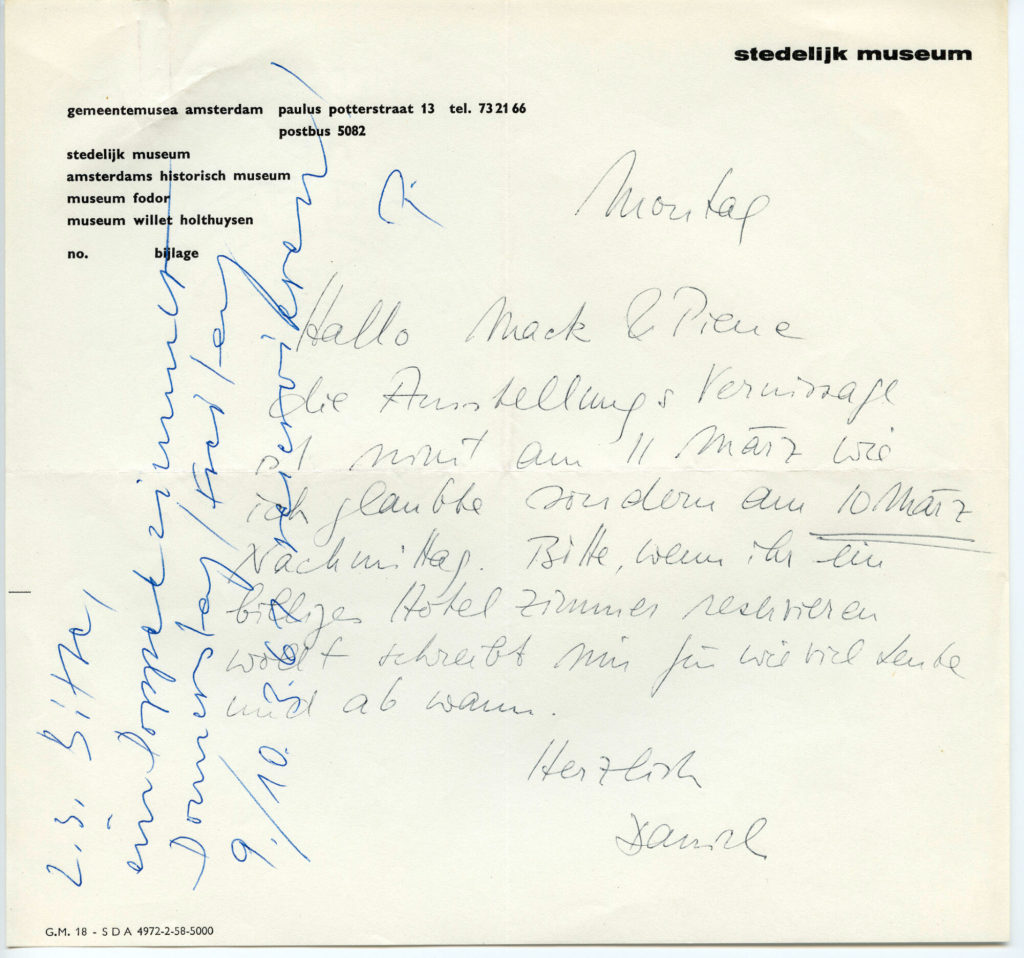 stedelijk museum
gemeentemusea amsterdam paulus potterstraat 13 tel. 73 21 66
postbus 5082
stedelijk museum
amsterdams historisch museum
museum fodor
museum willet holthuysen
no. bijlage
Montag
Hallo Mack & Piene
die Ausstellungs Vernissage
ist nicht am 11 März wie
ich glaubte sondern am 10 März
Nachmittag. Bitte, wenn ihr ein
billiges Hotel Zimmer reservieren
wollt schreibt mir für wieviel Leute
und ab wann.
Herzlich
Daniel
2.3. Bitte,
ein Doppelzimmer
Donnerstag/Freitag
9./10. 3. 61 reservieren
G.M. 18 - S D A 4972-2-58-5000